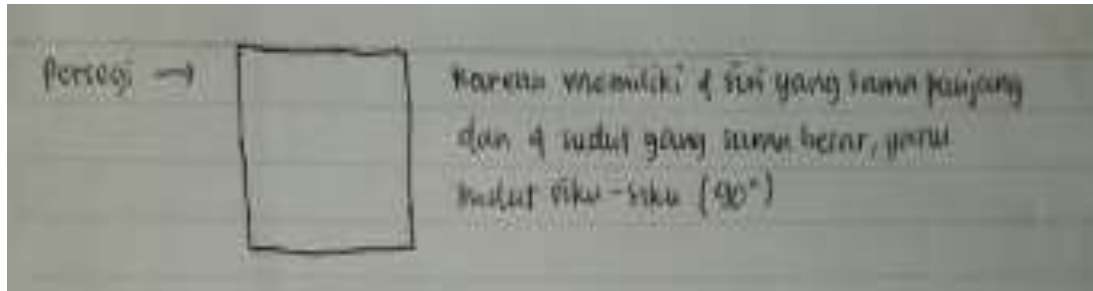 Persegi →
karena memiliki 4 sisi yang sama panjang
dan 4 sudut yang sama besar, yaitu
sudut siku-siku (90°)